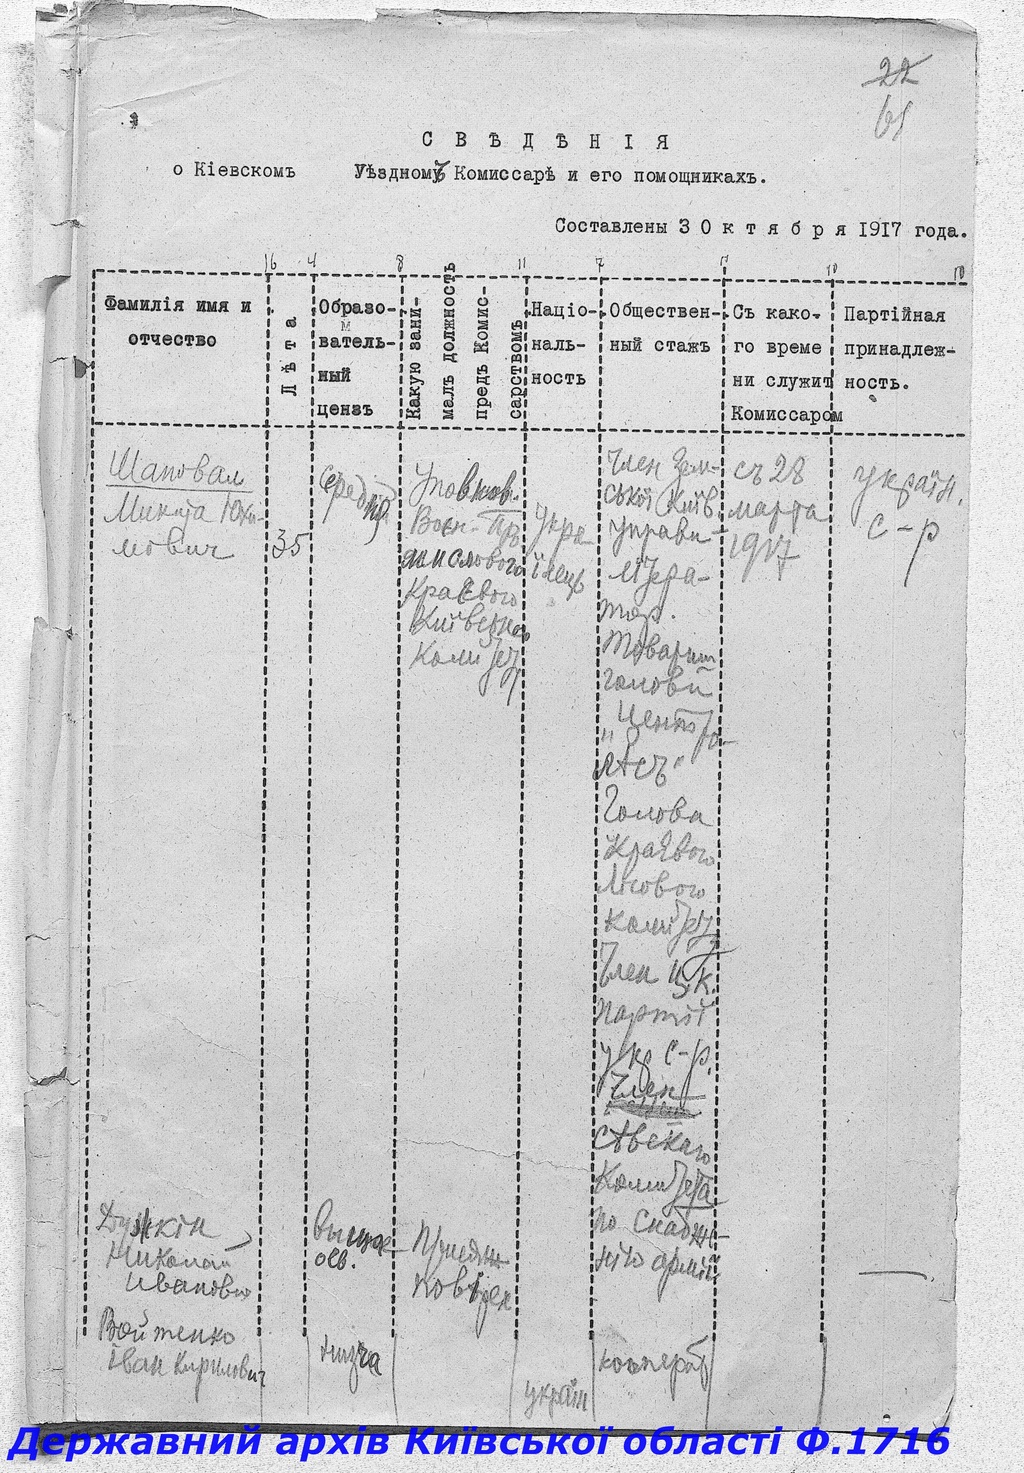 22
61
С В Ѣ Д Ѣ Н І Я
о Кіевскомъ Уѣздномъ Комиссарѣ и его помощникахъ.
Составлены 3 О к т я б р я 1917 года.
16 4 8 11 7 7 10 10
Фамилія имя и
отчество
Лѣта
Образо-
ватель-
ный
цензъ
Какую зани-
малъ должность
предъ Комис-
сарствомъ
Націо-
наль-
ность
Обществен-
ный стажъ
Съ како-
го време
ни служит
Комиссаром
Партійная
принадлеж-
ность.
Шаповал
Микита Юхи-
мович
35
середня
Уповнов.
Воєн-Пр
омислового
Краєвого
Київського
Комітету
Укра
їнець
Член Зем-
ської Київ.
Управи-
літера-
тор.
Товариш
голови
„Центро-
лѣсъ"
Голова
Краєвого
Лісового
Комітету
Член Ц.К.
партії
укр с-р.
Член
Комитета
по снабже-
нію армій
съ 28
марта
1917
україн.
с-р
Николай
Иванович
высше
обр.
Присяж
повірен
Войтенко
Іван Кирилович
низча
україн
кооперат
Державний архів Київської області Ф.1716